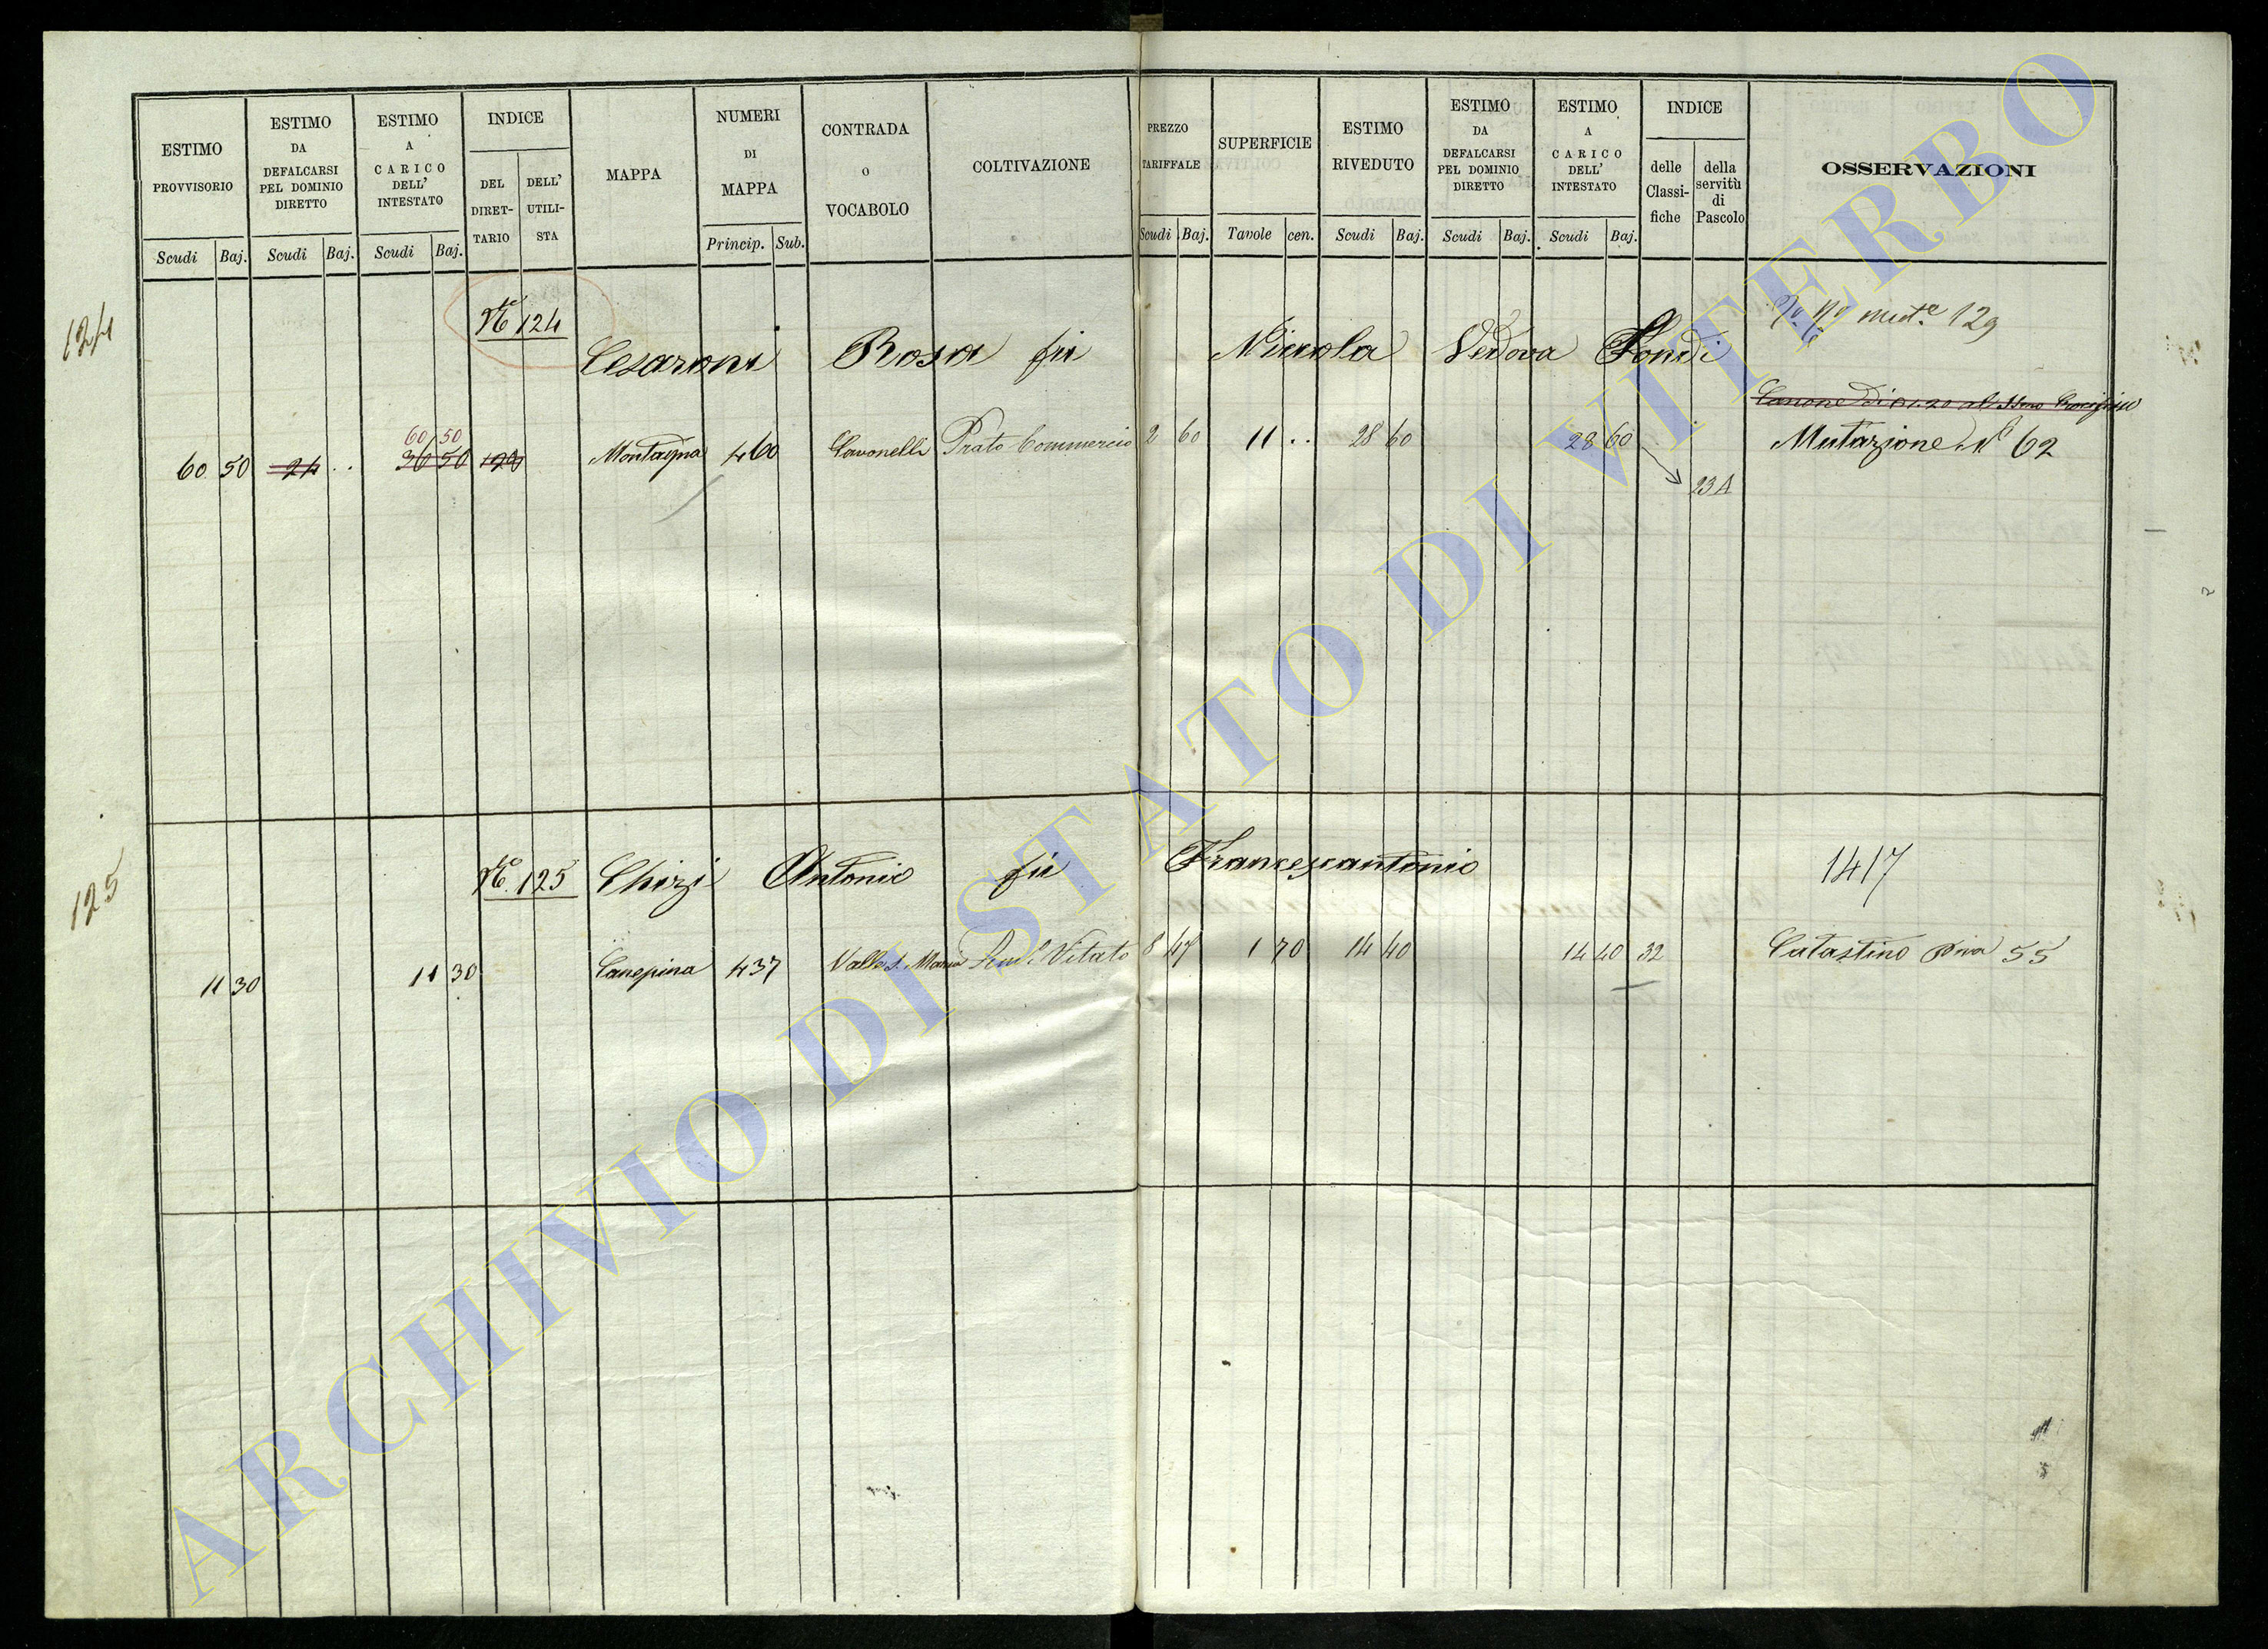 ESTIMO PROVVISORIO
Scudi Baj.
ESTIMO DA DEFALCARSI PEL DOMINIO DIRETTO
Scudi Baj.
ESTIMO A CARICO DELL' INTESTATO
Scudi Baj.
INDICE
DEL DIRET- TARIO
DELL' UTILI- STA
MAPPA
NUMERI DI MAPPA
Princip. Sub.
CONTRADA O VOCABOLO
COLTIVAZIONE
PREZZO TARIFFALE
Scudi Baj.
SUPERFICIE
Tavole cen.
ESTIMO RIVEDUTO
Scudi Baj.
ESTIMO DA DEFALCARSI PEL DOMINIO DIRETTO
Scudi Baj.
ESTIMO A CARICO DELL' INTESTATO
Scudi Baj.
INDICE
delle Classi- fiche
della servitù di Pascolo
OSSERVAZIONI
124
No 124
129
Cesaroni Rosa fu Niccola Vedova Fondi
Canone di
60 50
60 50 24 .. 30 50 Montagna 460 Cavonelle Prato Commercio 2 60 11 .. 28 60 28 60 Mutazione No 62
23 A
125
No. 125 Chizi Antonio fu Francescantonio 1417
11 30 11 30 Canepina 437 Valle S. Maria Vitato 8 47 1 70 14 40 14 40 32 Catastino 55
ARCHIVIO DI STATO DI VITERBO